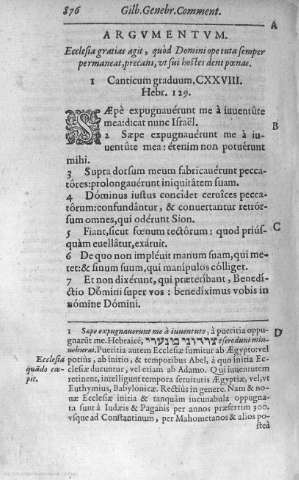 876 Gilb. Genebr. Comment.
A
ARGVMENTVM.
Ecclesia gratias agit, quòd Domini ope tuta semper
permaneat, precans, vt sui hostes dent pœnas.
1 Canticum graduum. CXXVIII.
Hebr. 129.
SÆpè expugnauérunt me à iuuentúte
mea: dicat nunc Israël.
B
2 Sæpe expugnauérunt me à iu-
uentúte mea: étenim non potuérunt
mihi.
3 Supra dorsum meum fabricauérunt pecca-
tóres: prolongauérunt iniquitátem suam.
4 Dóminus iustus concídet ceruíces pecca-
tórum: confundántur, & conuertantur retrór-
sum omnes, qui odérunt Sion.
C
5 Fiant, sicut fœnum tectórum: quod priús-
quàm euellátur, exáruit.
6 De quo non impléuit manum suam, qui me-
tet: & sinum suum, qui manípulos cólliget.
7 Et non dixérunt, qui præteríbant, Benedí-
ctio Dómini super vos: benedíximus vobis in
nómine Dómini.
D
1 Sæpe expugnauerunt me à iuuentute, à pueritia oppu-
gnarūt me. Hebraicè, צררוני מנעורי
nehurai. Pueritia autem Ecclesiæ sumitur ab Ægypto vel
Ecclesia potiùs, ab initio, & temporibus Abel, à quâ initia Ec-
quādo cœ- clesiæ ducuntur, vel etiam ab Adamo. Qui iuuentutem
pit. retinent, intelligunt tempora seruitutis Ægyptiæ, vel, vt
Euthymius, Babylonicæ. Rectiùs in genere. Nam & no-
uæ Ecclesiæ initia & tanquàm incunabula oppugna-
ta sunt à Iudæis & Paganis per annos præsertim 300.
vsque ad Constantinum, per Mahometanos & alios po-
steà